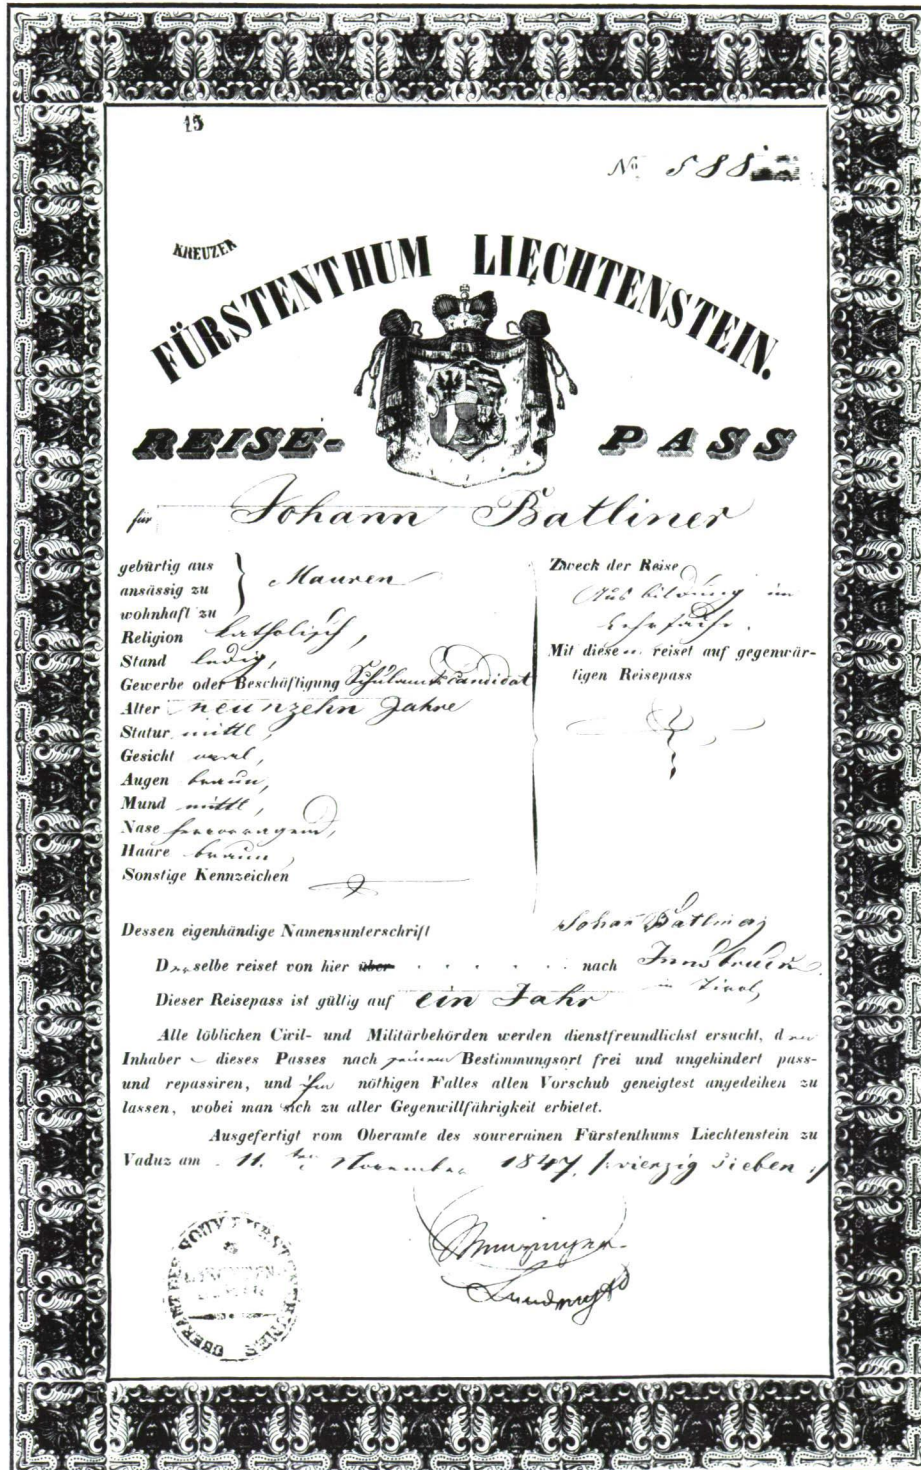 15
No 588
KREUZER
FÜRSTENTHUM LIECHTENSTEIN.
REISE- PASS
für Johann Batliner
gebürtig aus
ansässig zu
wohnhaft zu
Mauren
Religion katholisch,
Stand ledig,
Gewerbe oder Beschäftigung Schulamtskandidat
Alter neunzehn Jahre
Statur mittl,
Gesicht oval,
Augen braun,
Mund mittl,
Nase hervorragend,
Haare braun,
Sonstige Kennzeichen
Zweck der Reise
Ausbildung im
Lehrfache.
Mit diesem reiset auf gegenwär-
tigen Reisepass
Dessen eigenhändige Namensunterschrift Johan Batliner
Derselbe reiset von hier über . . . . . . nach Innsbruck
in Tirol,
Dieser Reisepass ist gültig auf ein Jahr
Alle löblichen Civil- und Militärbehörden werden dienstfreundlichst ersucht, den
Inhaber dieses Passes nach seinem Bestimmungsort frei und ungehindert pass-
und repassiren, und ihm nöthigen Falles allen Vorschub geneigtest angedeihen zu
lassen, wobei man sich zu aller Gegenwillfährigkeit erbietet.
Ausgefertigt vom Oberamte des souverainen Fürstenthums Liechtenstein zu
Vaduz am 11. ten November 1847, /: vierzig sieben :/
OBERAMT DES SOUV. FÜRSTENTHUMES
LIECHTENSTEIN